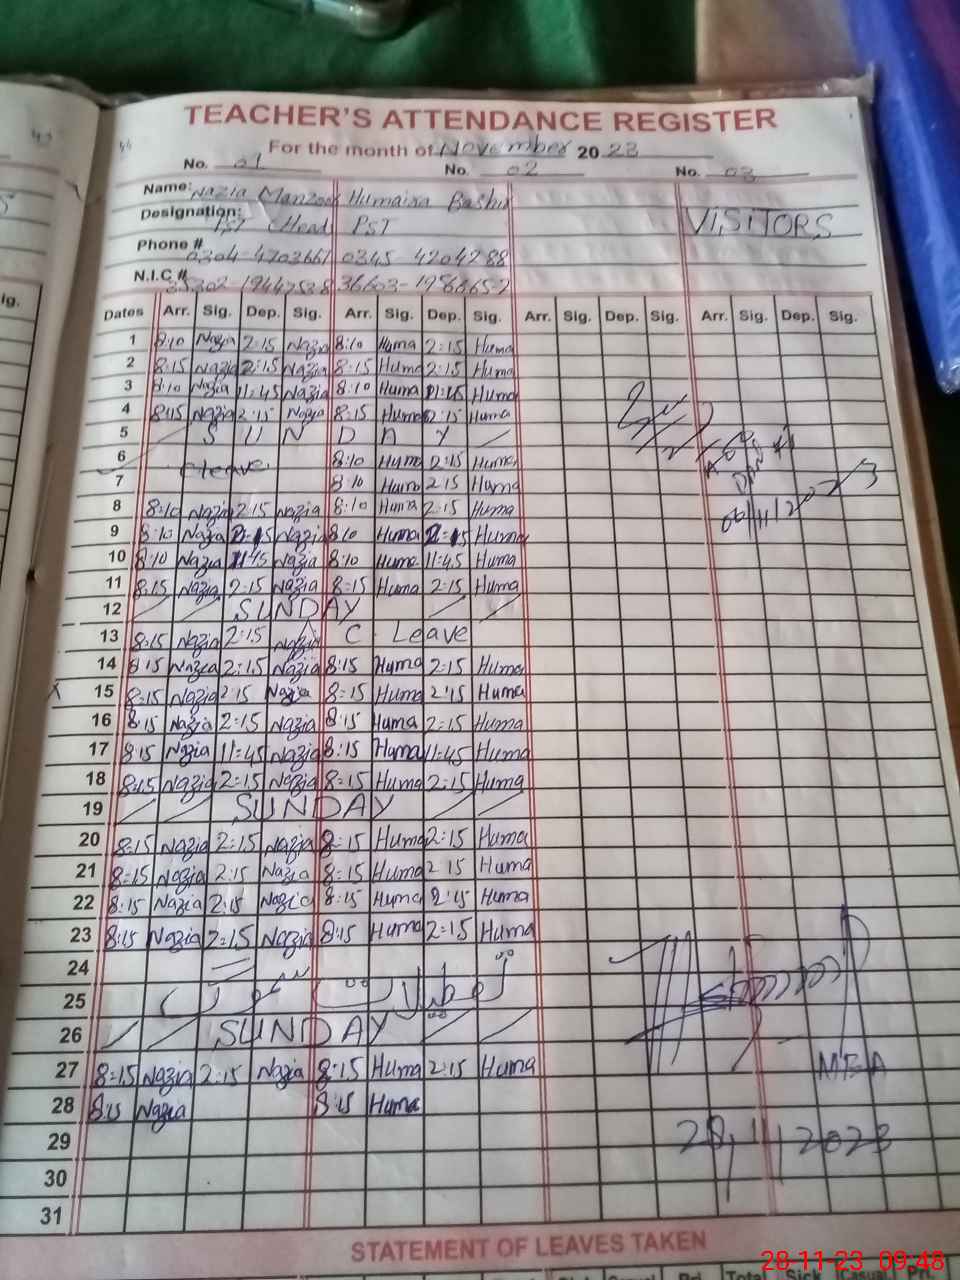 TEACHER'S ATTENDANCE REGISTER
For the month of November 2023
No. 01 No. 02 No. 03
Name: Nazia Manzoor Humaira Bashir
Designation: PST (Head PST VISITORS
Phone # 0304-4203661 0345-4204288
N.I.C #
Dates Arr. Sig. Dep. Sig. Arr. Sig. Dep. Sig. Arr. Sig. Dep. Sig. Arr. Sig. Dep. Sig.
1 8:10 Nazia 2:15 Nazia 8:10 Huma 2:15 Huma
2 8:15 Nazia 2:15 Nazia 8:15 Huma 2:15 Huma
3 8:10 Nazia 11:45 Nazia 8:10 Huma 11:45 Huma
4 8:15 Nazia 2:15 Nazia 8:15 Huma 2:15 Huma
5 SUNDAY
6 8:10 Huma 2:15 Huma
leave
7 8:10 Huma 2:15 Huma
8 8:10 Nazia 2:15 Nazia 8:10 Huma 2:15 Huma
06/11/2023
9 8:10 Nazia 2:15 Nazia 8:10 Huma 2:15 Huma
10 8:10 Nazia 11:45 Nazia 8:10 Huma 11:45 Huma
11 8:15 Nazia 2:15 Nazia 8:15 Huma 2:15 Huma
12 SUNDAY
13 8:15 Nazia 2:15 Nazia C. Leave
14 8:15 Nazia 2:15 Nazia 8:15 Huma 2:15 Huma
15 8:15 Nazia 2:15 Nazia 8:15 Huma 2:15 Huma
16 8:15 Nazia 2:15 Nazia 8:15 Huma 2:15 Huma
17 8:15 Nazia 11:45 Nazia 8:15 Huma 11:45 Huma
18 8:15 Nazia 2:15 Nazia 8:15 Huma 2:15 Huma
19 SUNDAY
20 8:15 Nazia 2:15 Nazia 8:15 Huma 2:15 Huma
21 8:15 Nazia 2:15 Nazia 8:15 Huma 2:15 Huma
22 8:15 Nazia 2:15 Nazia 8:15 Huma 2:15 Huma
23 8:15 Nazia 2:15 Nazia 8:15 Huma 2:15 Huma
24
25
26 SUNDAY
27 8:15 Nazia 2:15 Nazia 8:15 Huma 2:15 Huma
MEA
28 8:15 Nazia 8:15 Huma
29 28/11/2023
30
31
STATEMENT OF LEAVES TAKEN
28-11-23 09:48